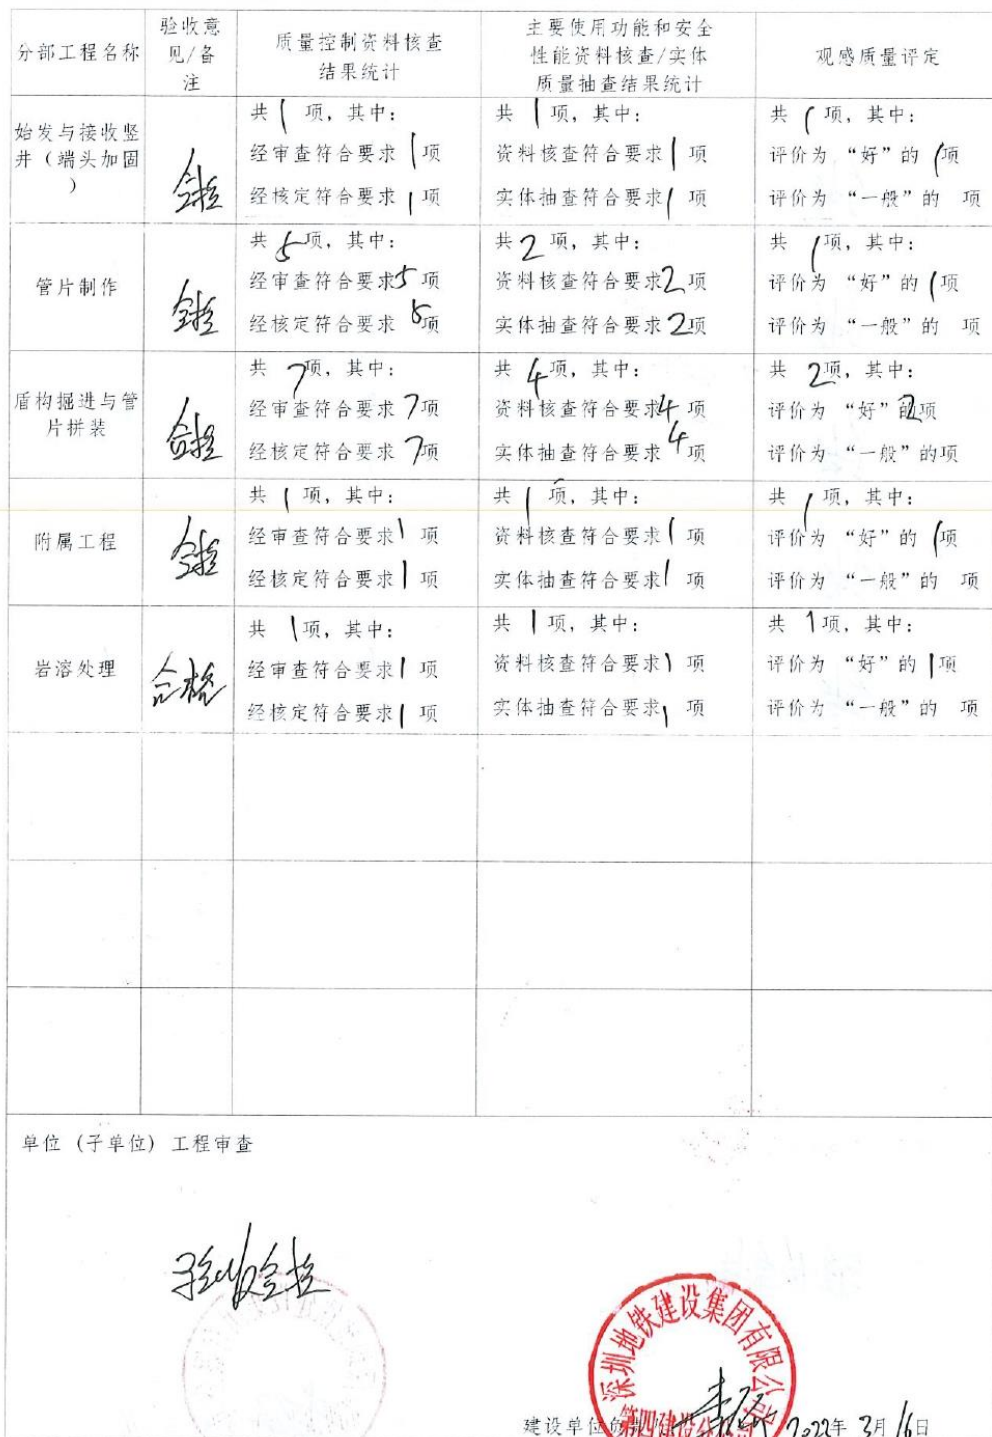 分部工程名称
验收意
见/备
注
质量控制资料核查
结果统计
主要使用功能和安全
性能资料核查/实体
质量抽查结果统计
观感质量评定
始发与接收竖
井（端头加固
）
合格
共 1 项，其中：
经审查符合要求 1 项
经核定符合要求 1 项
共 1 项，其中：
资料核查符合要求 1 项
实体抽查符合要求 1 项
共 1 项，其中：
评价为 “好”的 1 项
评价为 “一般”的 项
管片制作
合格
共 5 项，其中：
经审查符合要求 5 项
经核定符合要求 5 项
共 2 项，其中：
资料核查符合要求 2 项
实体抽查符合要求 2 项
共 1 项，其中：
评价为 “好”的 1 项
评价为 “一般”的 项
盾构掘进与管
片拼装
合格
共 7 项，其中：
经审查符合要求 7 项
经核定符合要求 7 项
共 4 项，其中：
资料核查符合要求 4 项
实体抽查符合要求 4 项
共 2 项，其中：
评价为 “好”的 2 项
评价为 “一般”的项
附属工程
合格
共 1 项，其中：
经审查符合要求 1 项
经核定符合要求 1 项
共 1 项，其中：
资料核查符合要求 1 项
实体抽查符合要求 1 项
共 1 项，其中：
评价为 “好”的 1 项
评价为 “一般”的 项
岩溶处理
合格
共 1 项，其中：
经审查符合要求 1 项
经核定符合要求 1 项
共 1 项，其中：
资料核查符合要求 1 项
实体抽查符合要求 1 项
共 1 项，其中：
评价为 “好”的 1 项
评价为 “一般”的 项
单位（子单位）工程审查
验收合格
深圳地铁建设集团有限公司
第四建设分
建设单位负责 2022年 3月 16日